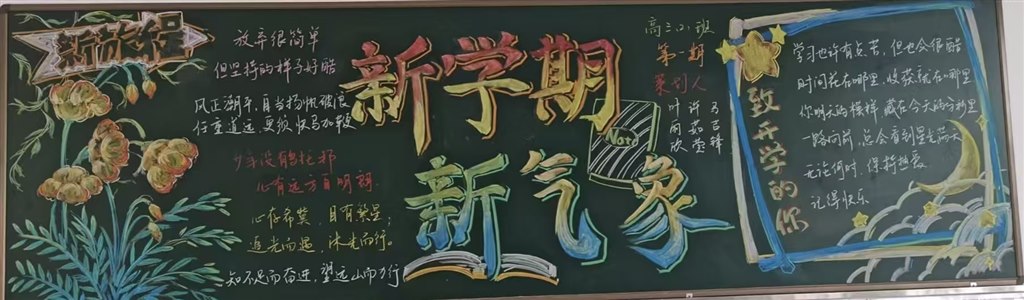 新旅程
放弃很简单
但坚持的样子好酷
风正潮平，自当扬帆破浪
任重道远，更须快马加鞭
少年没有乌托邦
心有远方自明朗
心存希冀，目有繁星；
追光而遇，沐光而行。
知不足而奋进，望远山而力行
新学期
新气象
Note
高二21班
第一期
策划人
叶雨欣
许如莹
致开学的你
学习也许有点苦，但也会很酷
时间花在哪里，收获就在哪里
你明天的模样，藏在今天的努力里
一路向前，总会看到星光满天
无论何时，保持热爱
记得快乐